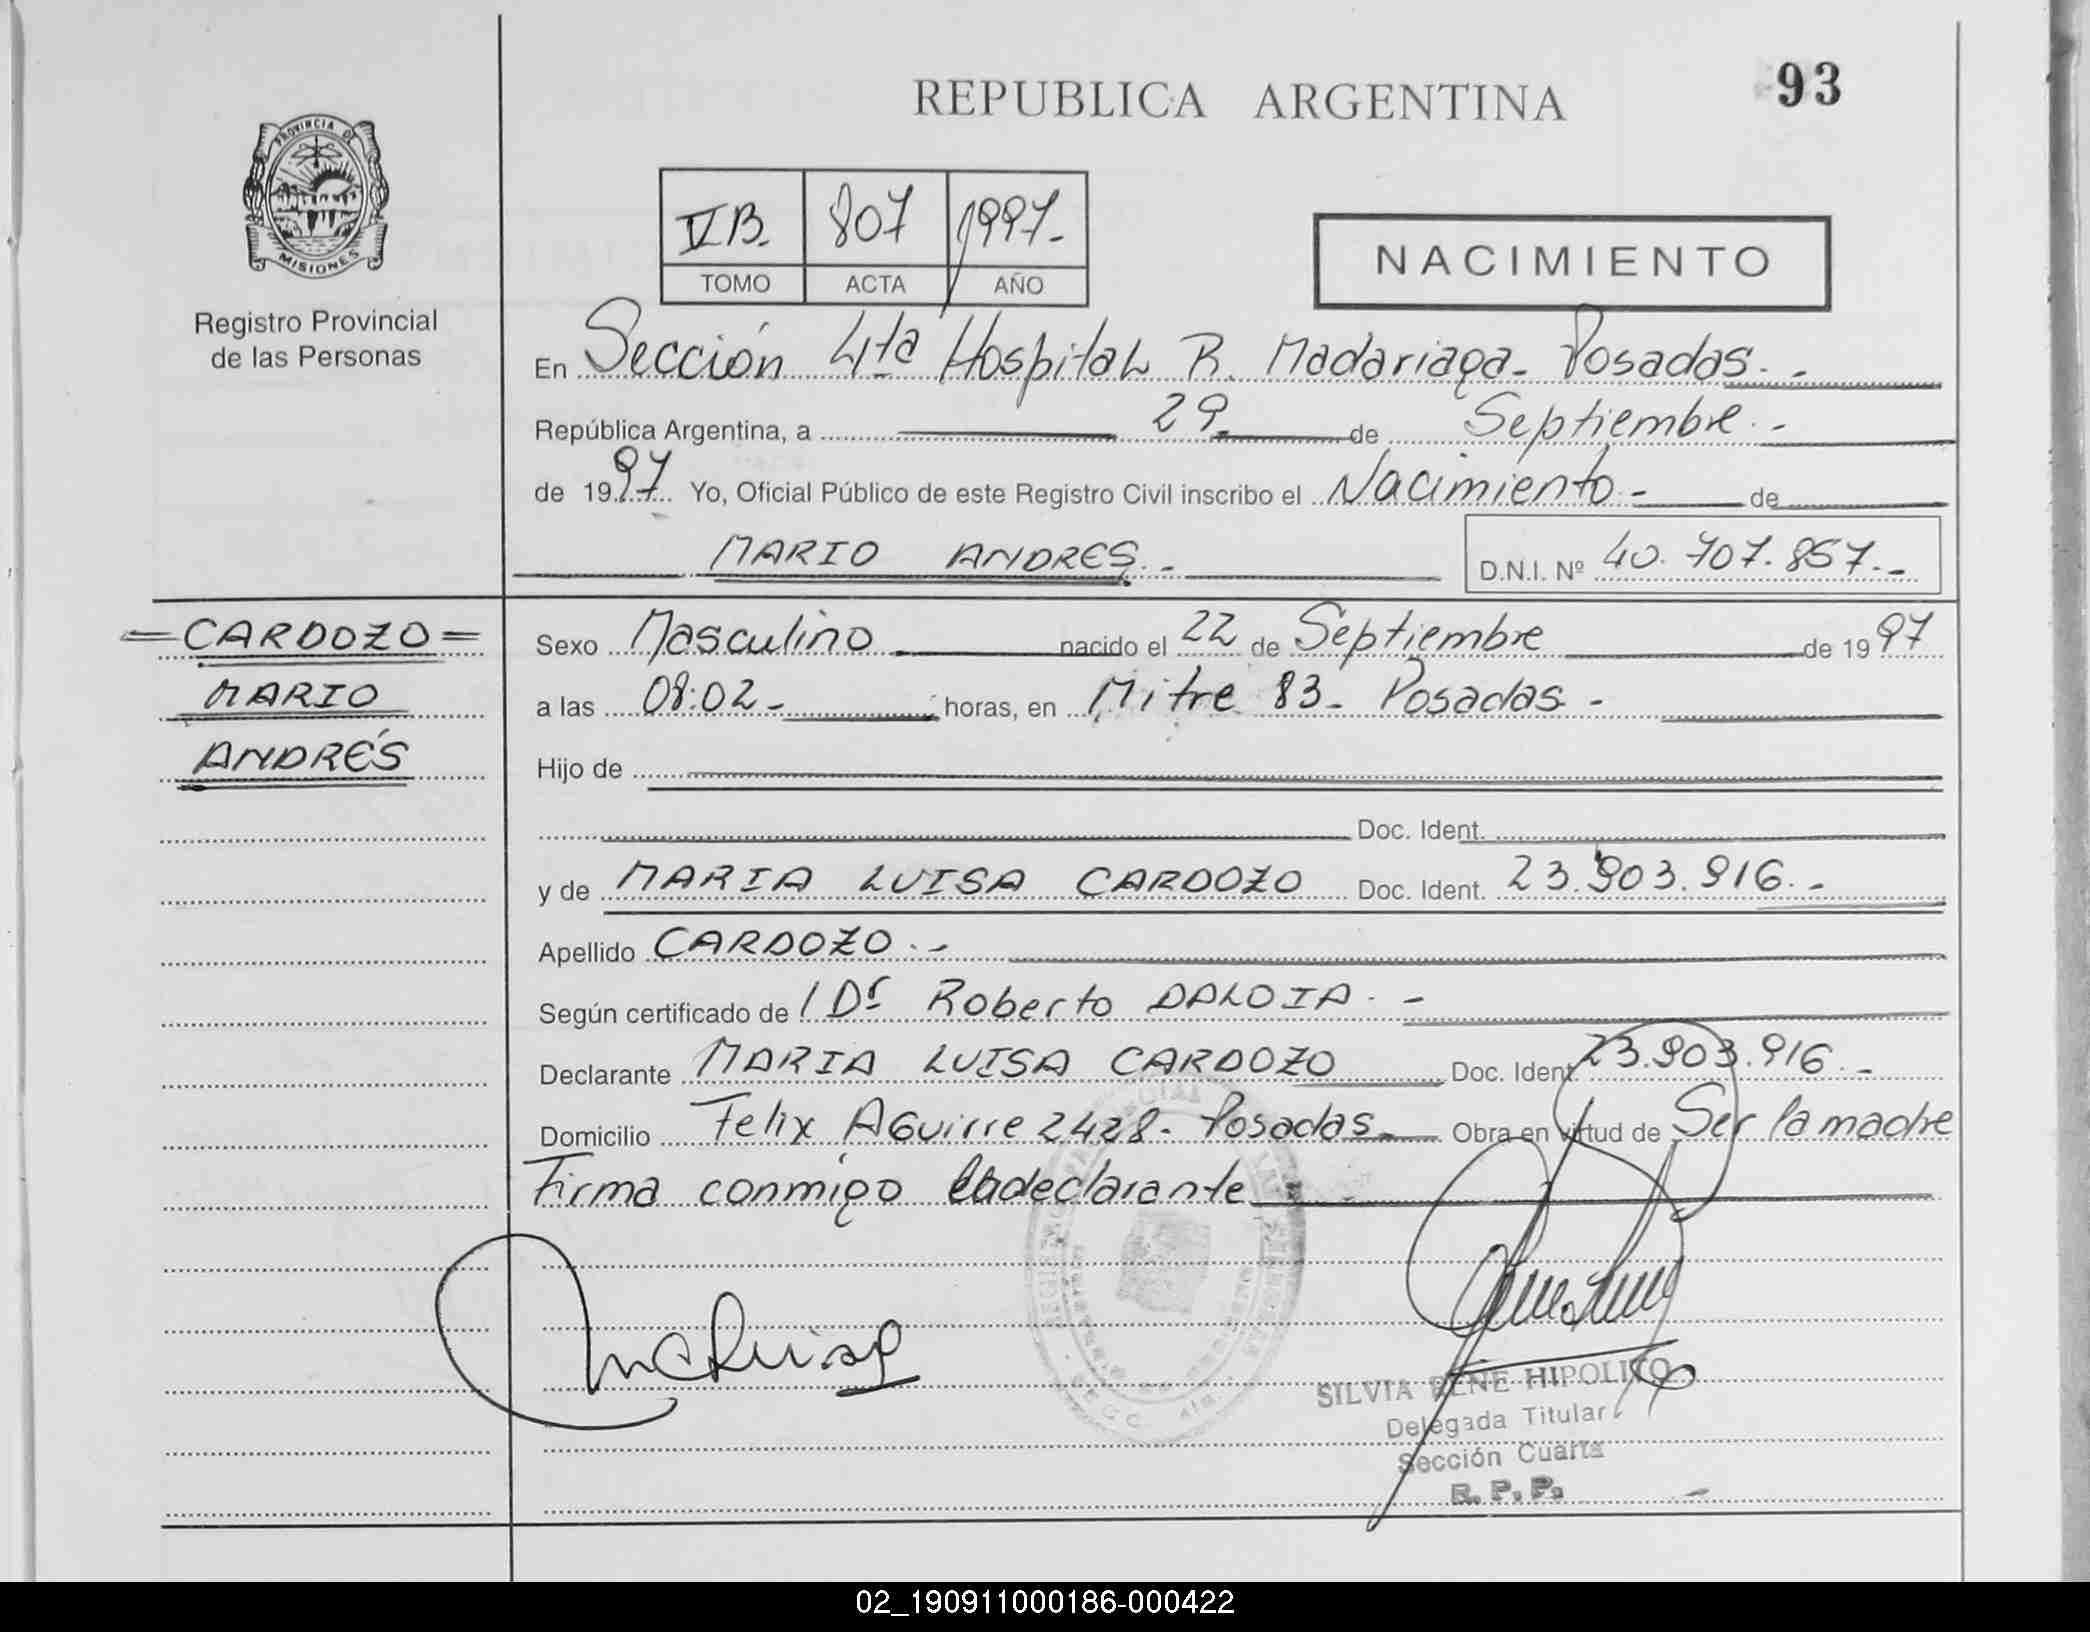 REPUBLICA ARGENTINA
93
PROVINCIA DE
MISIONES
Registro Provincial
de las Personas
VB. 807 1997.-
TOMO ACTA AÑO
NACIMIENTO
En Sección 4ta Hospital R. Madariaga - Posadas. -
República Argentina, a 29 de Septiembre. -
de 1997 Yo, Oficial Público de este Registro Civil inscribo el Nacimiento - de
MARIO ANDRES. -
D.N.I. Nº 40.707.857.-
= CARDOZO =
MARIO
ANDRÉS
Sexo Masculino nacido el 22 de Septiembre de 1997
a las 08:02 - horas, en Mitre 83 - Posadas -
Hijo de
Doc. Ident.
y de MARIA LUISA CARDOZO Doc. Ident. 23.903.916. -
Apellido CARDOZO. -
Según certificado de l Dr Roberto DALOIA. -
Declarante MARIA LUISA CARDOZO Doc. Ident. 23.903.916. -
Domicilio Felix Aguirre 2428 - Posadas - Obra en virtud de Ser la madre
Firma conmigo la declarante
Ma Luisa
SILVIA RENE HIPOLITO
Delegada Titular
Sección Cuarta
R. P. P.
02_190911000186-000422